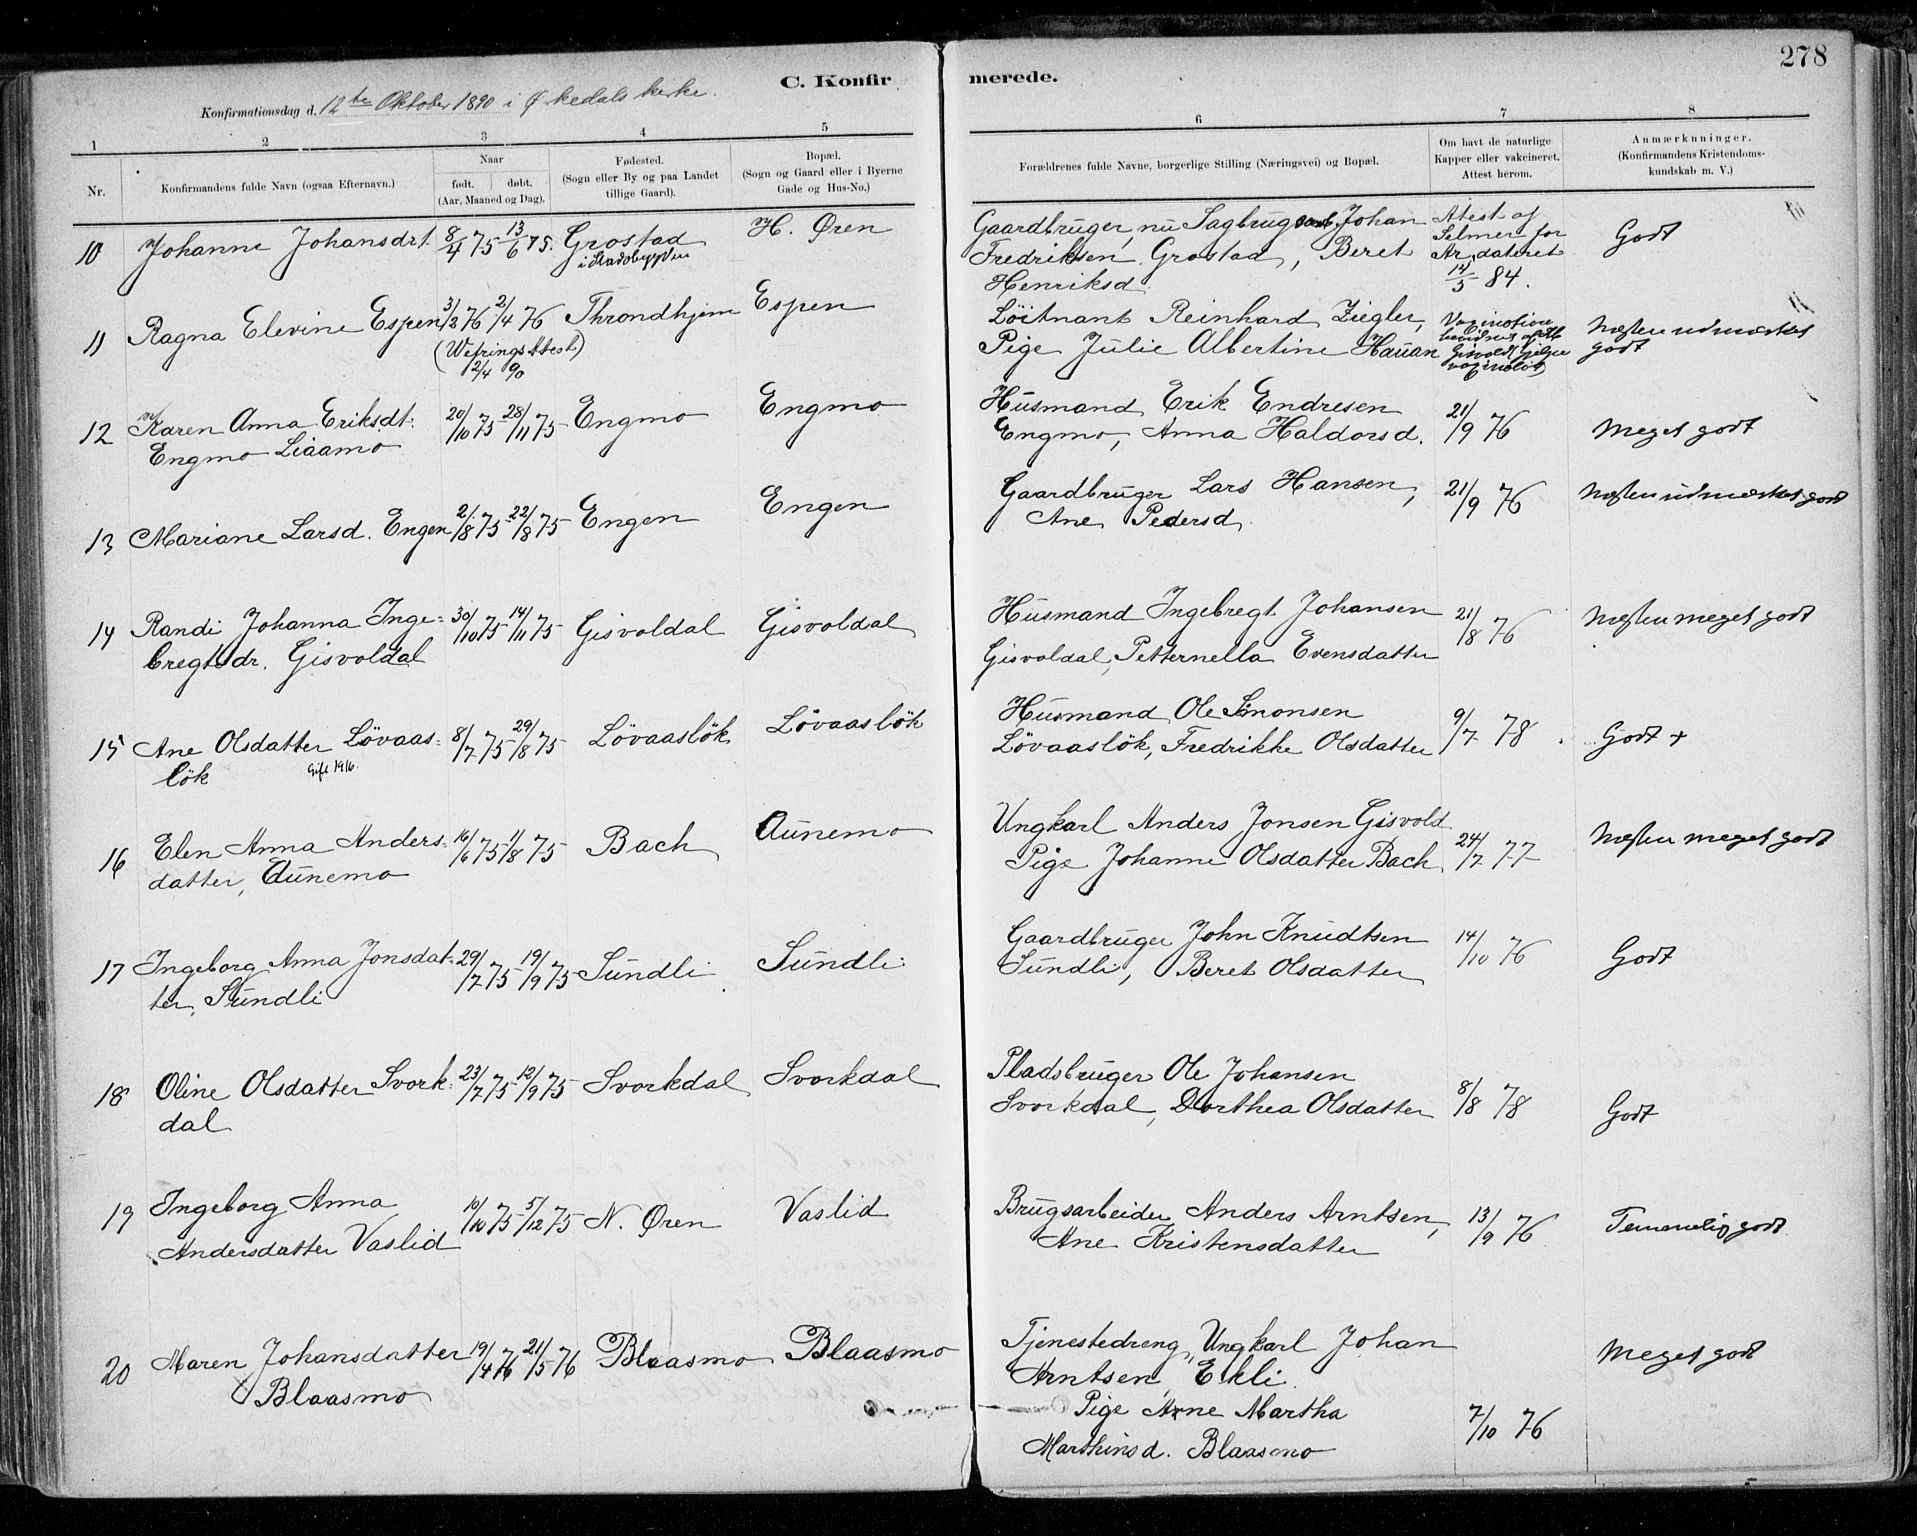 278
C. Konfirmerede.
Konfirmationsdag d. 12te Oktober 1890 i Ørkedals kirke.
1 2 3 4 5 6 7 8
Nr.
Konfirmandens fulde Navn (ogsaa Efternavn.)
Naar
født. døbt.
(Aar, Maaned og Dag).
Fødested.
(Sogn eller By og paa Landet
tillige Gaard).
Bopæl.
(Sogn og Gaard eller i Byerne
Gade og Hus-No.)
Forældrenes fulde Navne, borgerlige Stilling (Næringsvei) og Bopæl.
Om havt de naturlige
Kapper eller vakcineret.
Attest herom.
Anmærkninger.
(Konfirmandens Kristendoms-
kundskab m. V.)
10 Johanne Johansdt. 8/4 75 13/6 75. Grostad H. Øren Gaardbruger, nu Sagbrugsarb. Johan Attest af Godt
i Stadsbygden Fredriksen Grostad, Beret Selmer for
Henriksd. Ar. dateret
14/5 84.
11 Ragna Elevine Espen 3/2 76 2/4 76 Throndhjem Espen Löitnant Reinhard Ziegler, Næsten udmærket
(Wefrings Attest) Pige Julie Albertine Hauan godt
2/4 90
12 Karen Anna Eriksdt. 20/10 75 28/11 75 Engmo Engmo Husmand Erik Endresen 21/9 76 Meget godt
Engmo Liaamo Engmo, Anna Haldorsd.
13 Mariane Larsd. Engen 2/8 75 22/8 75 Engen Engen Gaardbruger Lars Hansen, 21/9 76 Næsten udmærket godt
Ane Pedersd.
14 Randi Johanna Inge- 30/10 75 14/11 75 Gisvoldal Gisvoldal Husmand Ingebregt Johansen 21/8 76 Næsten meget godt
bregtsdr. Gisvoldal Gisvoldal, Petternella Evensdatter
15 Ane Olsdatter Lövaas- 8/7 75 29/8 75 Lövaaslök Lövaaslök Husmand Ole Simonsen 9/7 78. Godt +
lök Gift 1916. Lövaaslök, Fredrikke Olsdatter
16 Elen Anna Anders- 16/6 75 1/8 75 Bach Aunemo Ungkarl Anders Jonsen Gisvold 24/7 77 Næsten meget godt
datter, Aunemo Pige Johanne Olsdatter Bach
17 Ingeborg Anna Jonsdat- 29/7 75 19/9 75 Sundli Sundli Gaardbruger John Knudtsen 14/10 76 Godt
ter, Sundli Sundli, Beret Olsdatter
18 Oline Olsdatter Svork- 23/7 75 12/9 75 Svorkdal Svorkdal Pladsbruger Ole Johansen 8/8 78 Godt
dal Svorkdal, Dorthea Olsdatter
19 Ingeborg Anna 10/10 75 5/12 75 N. Øren Vaslid Brugsarbeider Anders Arntsen, 13/9 76 Temmelig godt
Andersdatter Vaslid Ane Kristensdatter
20 Maren Johansdatter 19/4 76 21/5 76 Blaasmo Blaasmo Tjenestedreng, Ungkarl Johan Meget godt
Blaasmo Arntsen Ekli.
Pige Arne Martha 7/10 76
Marthinsd. Blaasmo